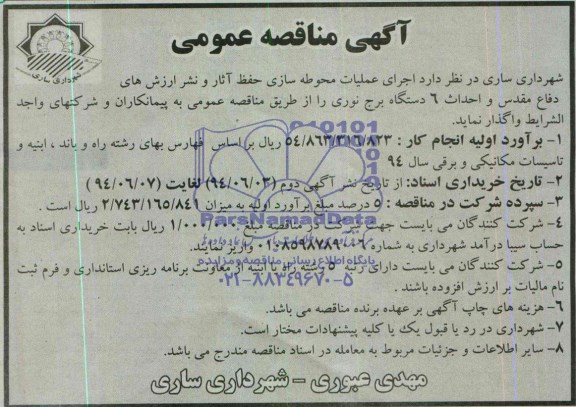 آگهی مناقصه عمومی
شهرداری ساری
شهرداری ساری در نظر دارد اجرای عملیات محوطه سازی حفظ آثار و نشر ارزش های
دفاع مقدس و احداث ۶ دستگاه برج نوری را از طریق مناقصه عمومی به پیمانکاران و شرکتهای واجد
الشرایط واگذار نماید.
۱- برآورد اولیه انجام کار : ۵۴/۸۶۳/۳۱۶/۸۲۳ ریال بر اساس فهارس بهای رشته راه و باند ، ابنیه و
تاسیسات مکانیکی و برقی سال ۹۴
۲- تاریخ خریداری اسناد: از تاریخ نشر آگهی دوم (۹۴/۰۶/۰۳) لغایت (۹۴/۰۶/۰۷ )
۳- سپرده شرکت در مناقصه : ۵ درصد مبلغ برآورد اولیه به میزان ۲/۷۴۳/۱۶۵/۸۴۱ ریال است .
۴- شرکت کنندگان می بایست جهت شرکت در مناقصه مبلغ ۱/۰۰۰/۰۰۰ ریال بابت خریداری اسناد به
حساب سیبا درآمد شهرداری به شماره واریز نمایند.
۵- شرکت کنندگان می بایست دارای رتبه ۵ رشته راه یا ابنیه از معاونت برنامه ریزی استانداری و فرم ثبت
نام مالیات بر ارزش افزوده باشند .
۶- هزینه های چاپ آگهی بر عهده برنده مناقصه می باشد.
۷- شهرداری در رد یا قبول یک یا کلیه پیشنهادات مختار است.
۸- سایر اطلاعات و جزئیات مربوط به معامله در اسناد مناقصه مندرج می باشد.
مهدی عبوری – شهرداری ساری
ParsNamadData
پایگاه اطلاع رسانی مناقصه و مزایده
۰۲۱-۸۸۳۴۹۶۷۰-۵